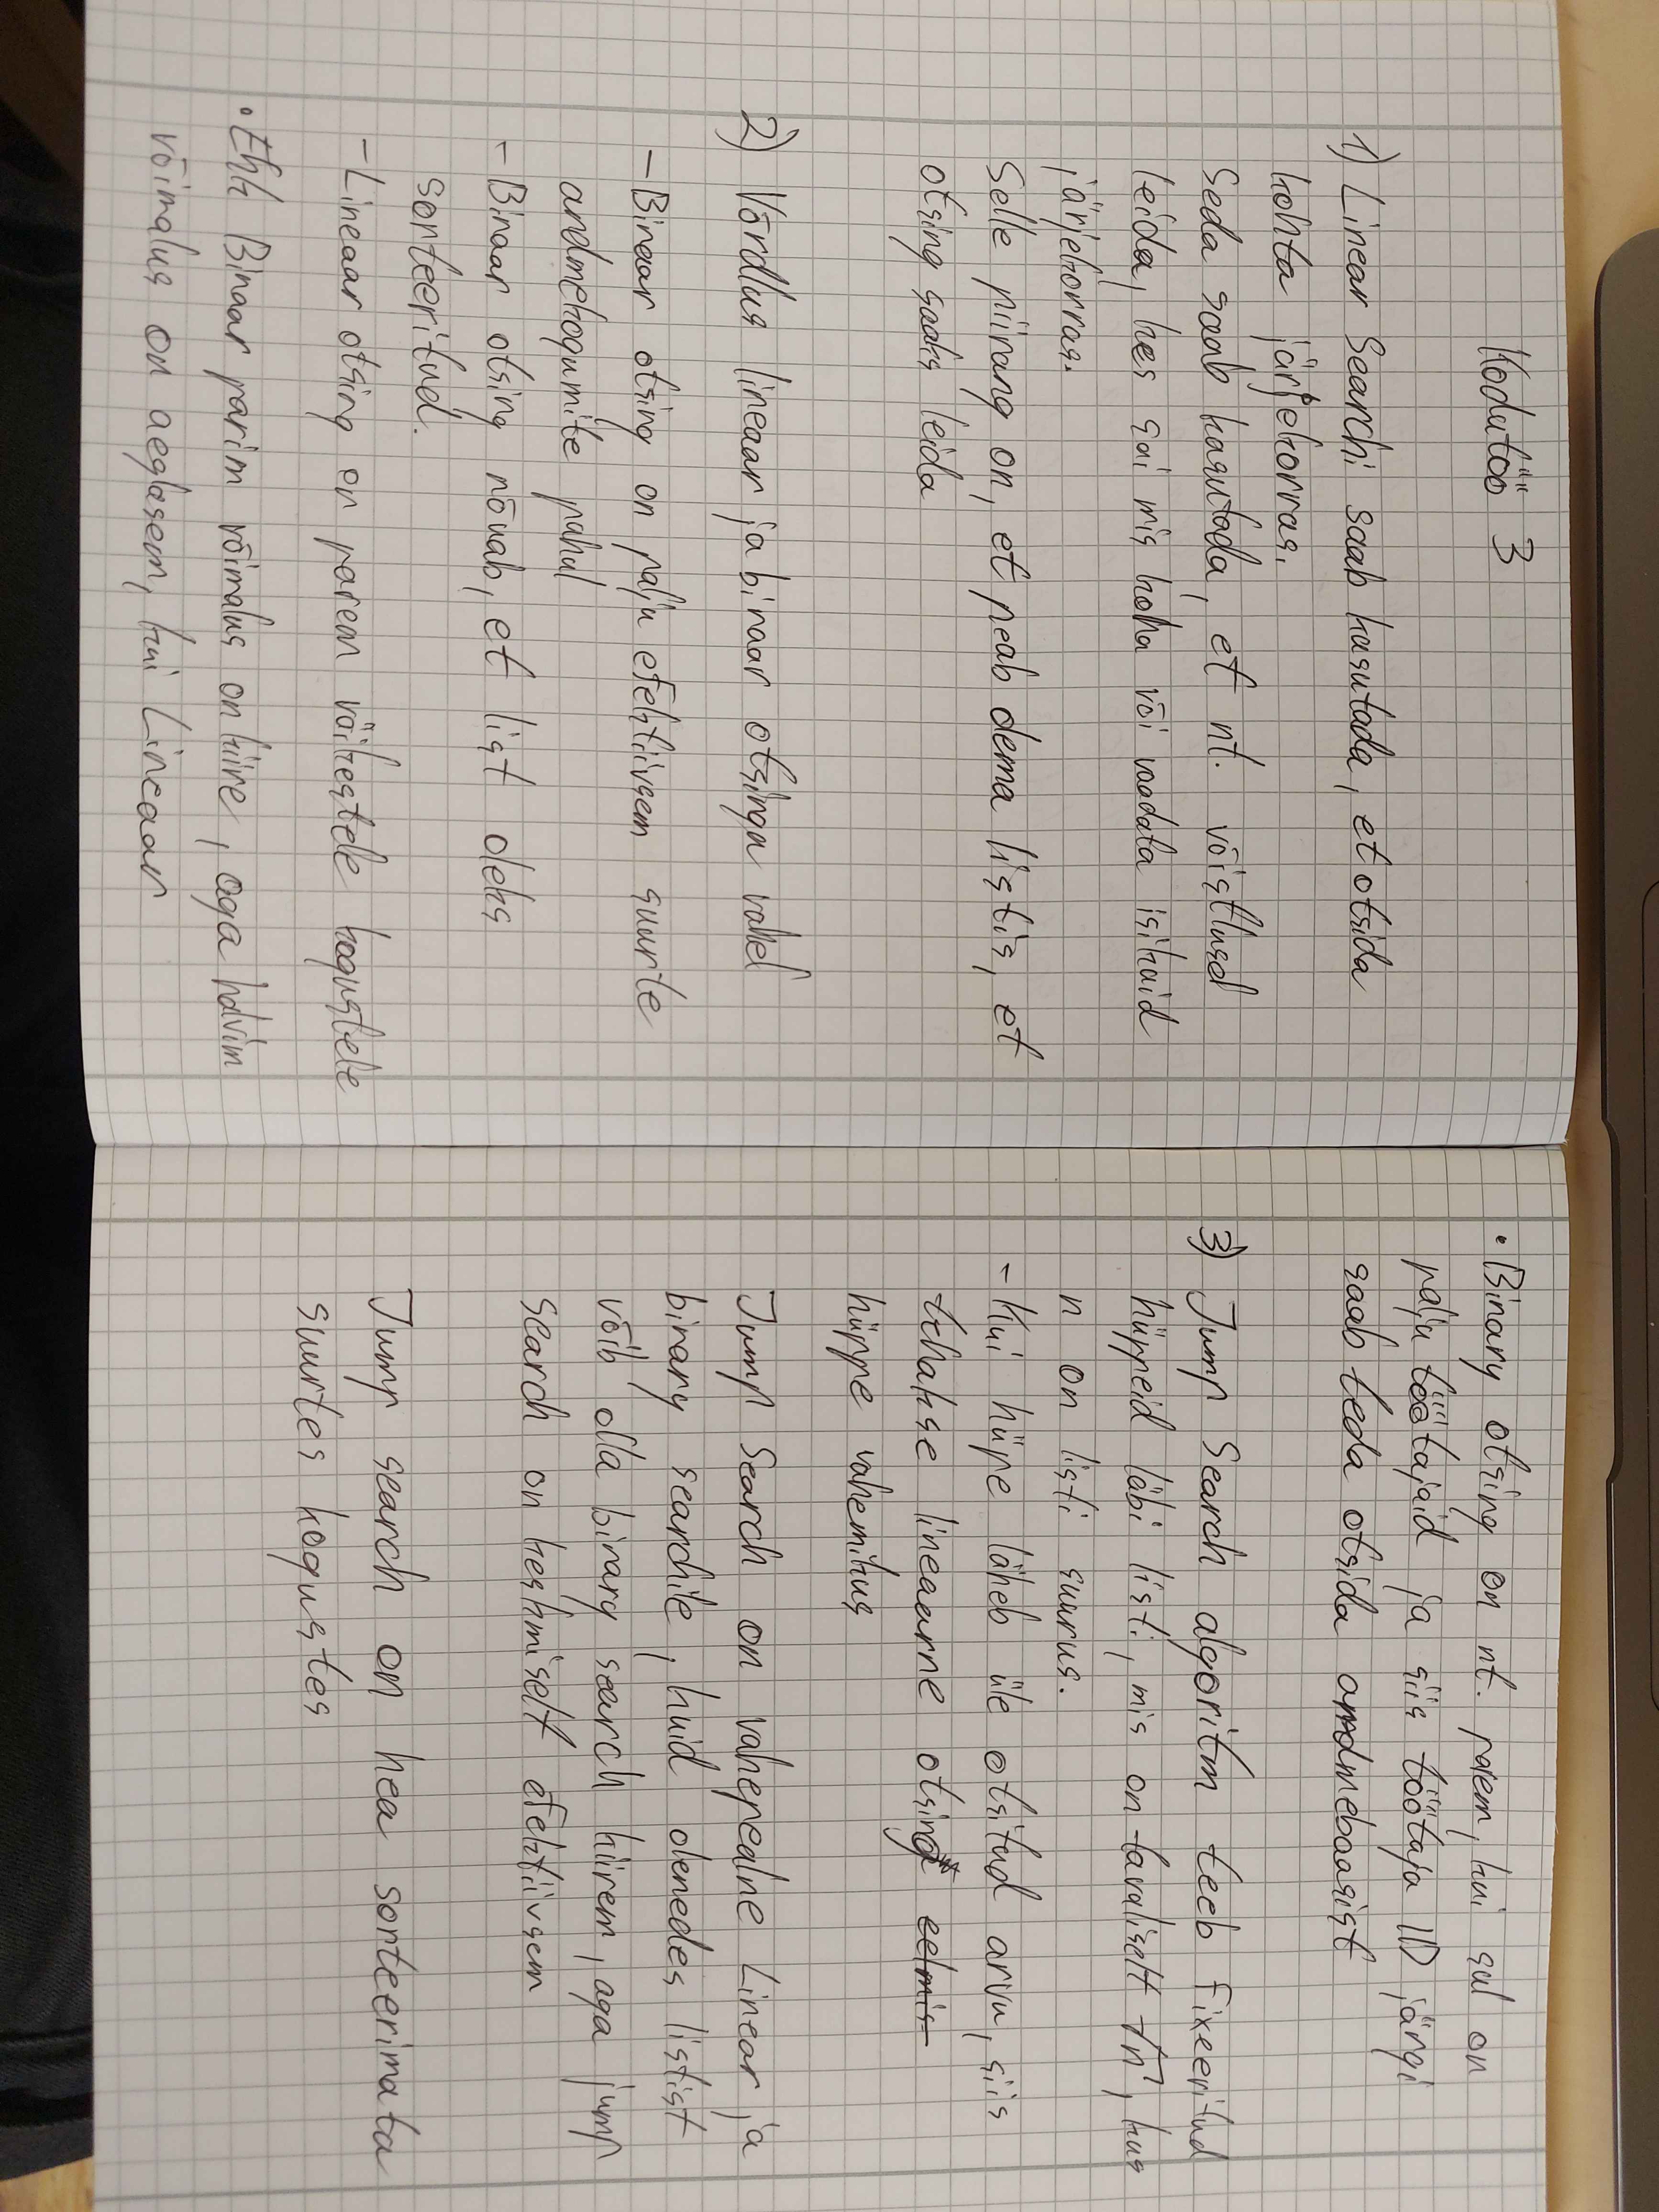 Kodutöö 3
1) Linear Searchi saab kasutada, et otsida
kohta järjekorras.
Seda saab kasutada, et nt. võistlusel
leida, kes sai mis koha või vaadata isikuid
järjekorras.
Selle piirang on, et peab olema listis, et
otsing saaks leida
2) Võrdlus lineaar ja binaar otsingu vahel
- Binaar otsing on palju efektiivsem suurte
andmekogumite puhul
- Binaar otsing nõuab, et list oleks
sorteeritud.
- Lineaar otsing on parem väikestele kogustele
• Ehk Binaar parim võimalus on kiire, aga halvim
võimalus on aeglasem, kui Lineaar
• Binary otsing on nt. parem, kui sul on
palju töötajaid ja siis töötaja ID järgi
saab teda otsida andmebaasist
3) Jump Search algoritm teeb fixeeritud
hüppeid läbi listi, mis on tavaliselt √n, kus
n on listi suurus.
- Kui hüpe läheb üle otsitud arvu, siis
tehakse lineaarne otsing eelmis-
hüppe vahemikus
Jump Search on vahepealne Linear ja
binary searchile, kuid olenedes listist
võib olla binary search kiirem, aga jump
search on keskmiselt efektiivsem
Jump search on hea sorteerimata
suurtes kogustes